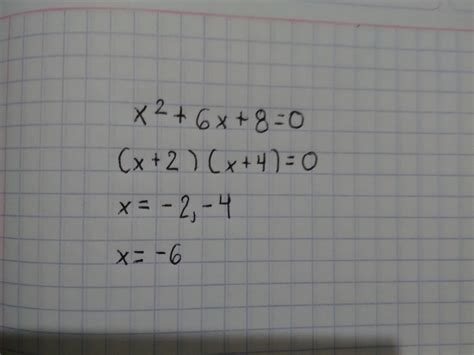 x² + 6x + 8 = 0
(x + 2) (x + 4) = 0
x = -2, -4
x = -6